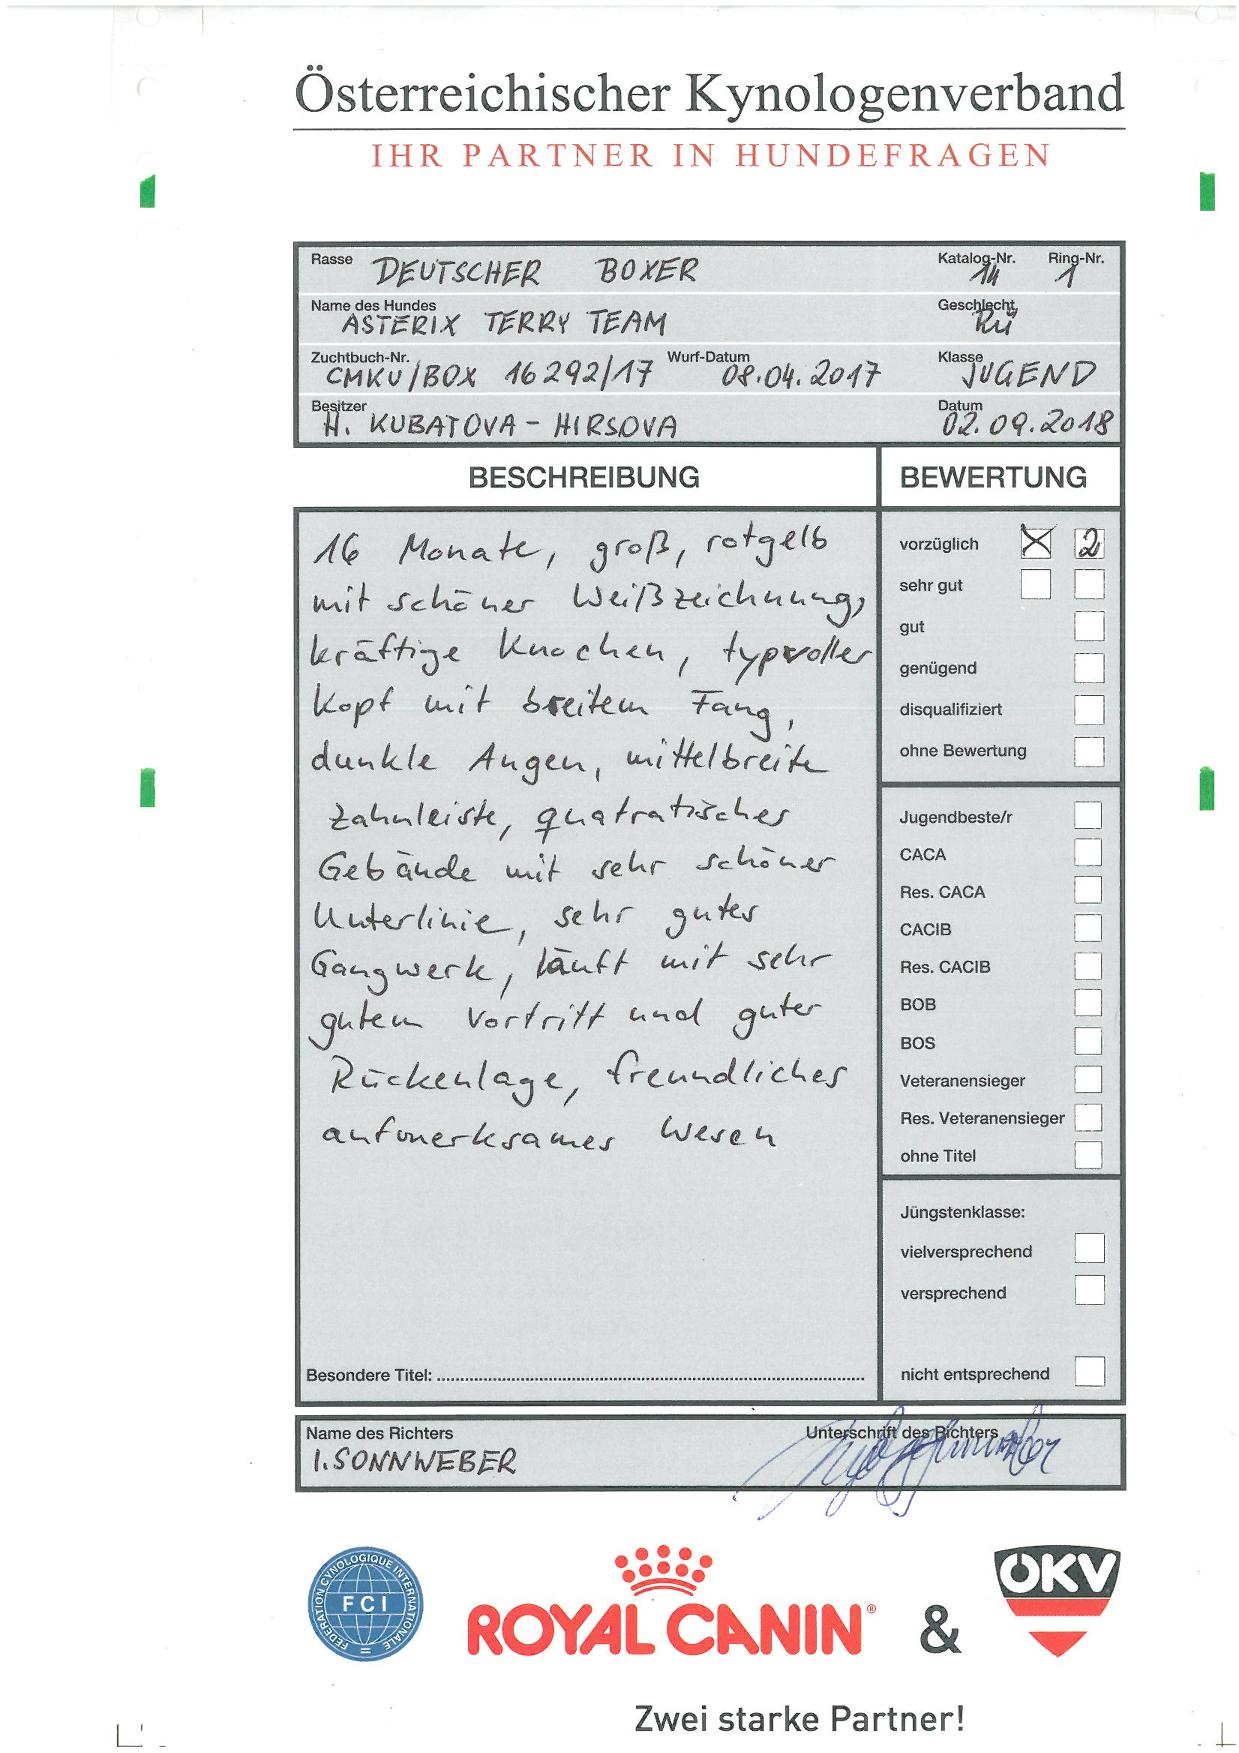 Österreichischer Kynologenverband
IHR PARTNER IN HUNDEFRAGEN
Rasse DEUTSCHER BOXER Katalog-Nr. 14 Ring-Nr. 1
Name des Hundes ASTERIX TERRY TEAM Geschlecht Rü
Zuchtbuch-Nr. CMKU/BOX 16292/17 Wurf-Datum 08.04.2017 Klasse JUGEND
Besitzer H. KUBATOVA - HIRSOVA Datum 02.09.2018
BESCHREIBUNG
16 Monate, groß, rotgelb
mit schöner Weißzeichnung,
kräftige Knochen, typvoller
Kopf mit breitem Fang,
dunkle Augen, mittelbreite
Zahnleiste, quatratisches
Gebäude mit sehr schöner
Unterlinie, sehr gutes
Gangwerk, läuft mit sehr
gutem Vortritt und guter
Rückenlage, freundliches
aufmerksames Wesen
Besondere Titel:
BEWERTUNG
vorzüglich X 2
sehr gut
gut
genügend
disqualifiziert
ohne Bewertung
Jugendbeste/r
CACA
Res. CACA
CACIB
Res. CACIB
BOB
BOS
Veteranensieger
Res. Veteranensieger
ohne Titel
Jüngstenklasse:
vielversprechend
versprechend
nicht entsprechend
Name des Richters Unterschrift des Richters
I. SONNWEBER
FEDERATION CYNOLOGIQUE INTERNATIONALE
FCI
ROYAL CANIN® & ÖKV
Zwei starke Partner!